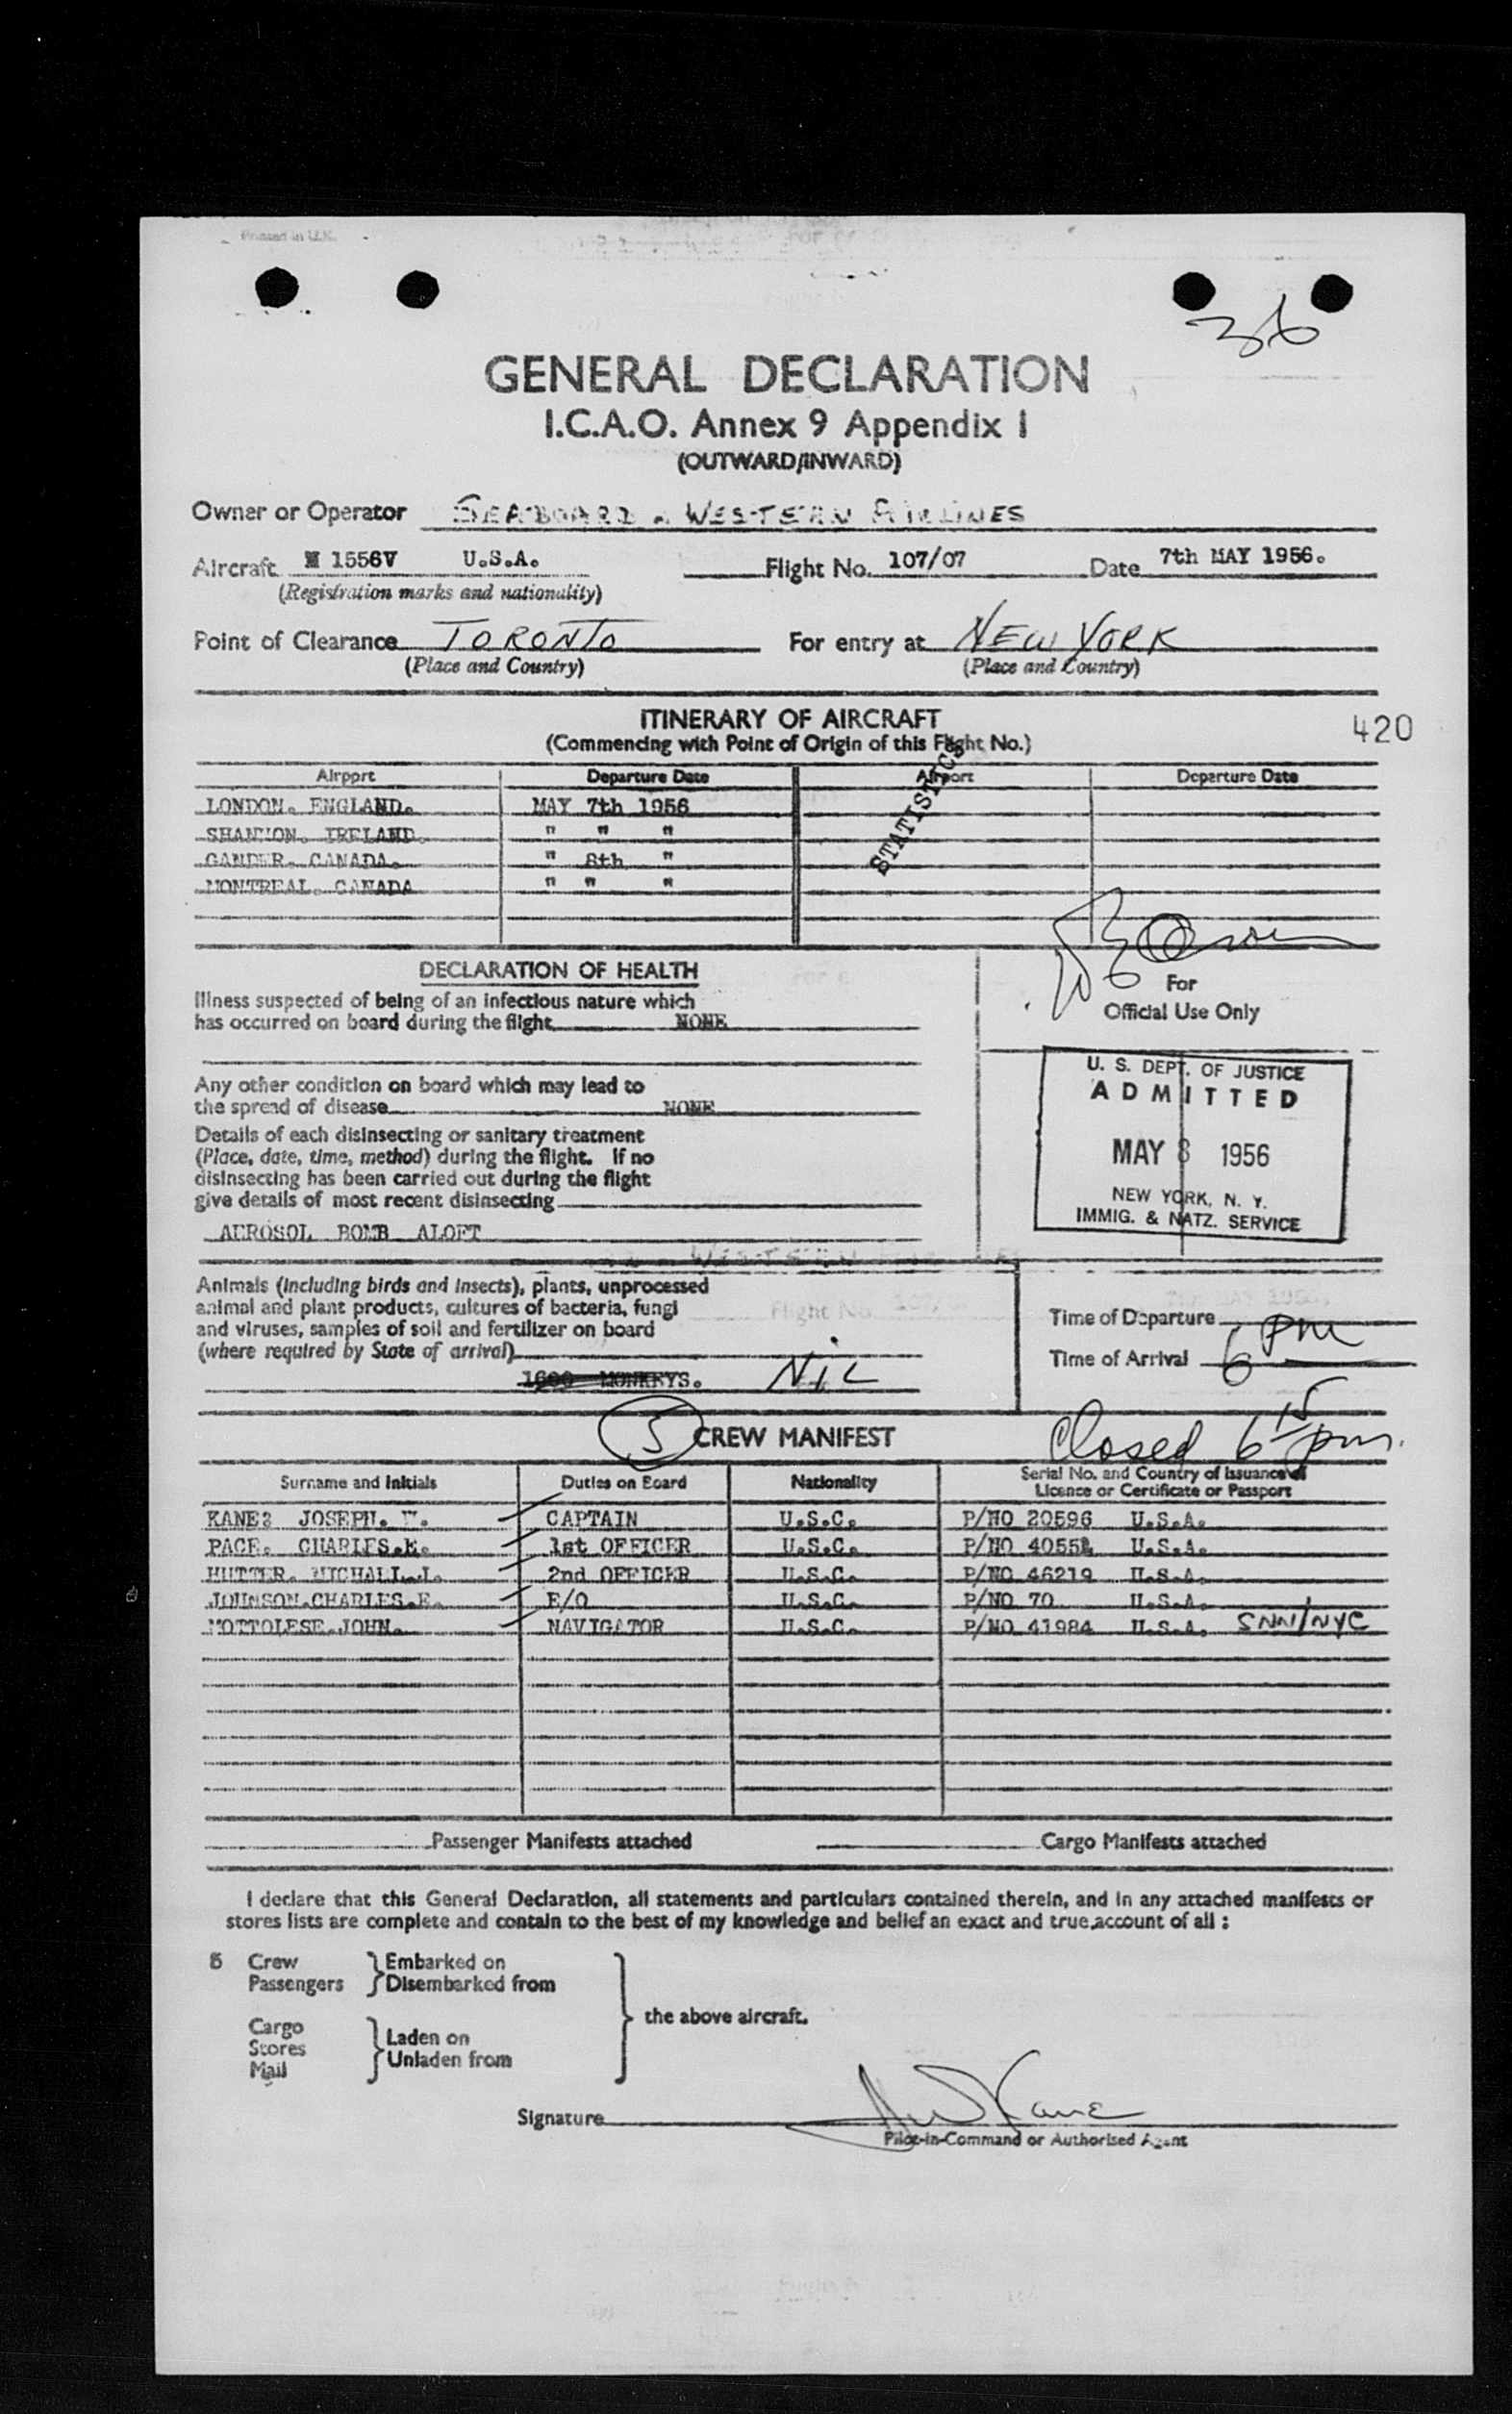 Printed in U.K.
36
GENERAL DECLARATION
I.C.A.O. Annex 9 Appendix 1
(OUTWARD/INWARD)
Owner or Operator SEABOARD & WESTERN AIRLINES
Aircraft N 1556V U.S.A. Flight No. 107/07 Date 7th MAY 1956.
(Registration marks and nationality)
Point of Clearance TORONTO For entry at NEW YORK
(Place and Country) (Place and Country)
ITINERARY OF AIRCRAFT
420
(Commencing with Point of Origin of this Flight No.)
Airport Departure Date Airport Departure Date
LONDON. ENGLAND. MAY 7th 1956
STATISTICS
SHANNON. IRELAND. " " "
GANDER. CANADA. " 8th "
MONTREAL. CANADA " " "
DECLARATION OF HEALTH
For
Official Use Only
Illness suspected of being of an infectious nature which
has occurred on board during the flight NONE
Any other condition on board which may lead to
the spread of disease NONE
U. S. DEPT. OF JUSTICE
ADMITTED
MAY 8 1956
NEW YORK, N. Y.
IMMIG. & NATZ. SERVICE
Details of each disinsecting or sanitary treatment
(Place, date, time, method) during the flight. If no
disinsecting has been carried out during the flight
give details of most recent disinsecting
AEROSOL BOMB ALOFT
Animals (including birds and insects), plants, unprocessed
animal and plant products, cultures of bacteria, fungi
and viruses, samples of soil and fertilizer on board
(where required by State of arrival)
1600 MONKEYS. NIL
Time of Departure
Time of Arrival 6 pm
5 CREW MANIFEST
Closed 6 15 pm.
Surname and Initials Duties on Board Nationality Serial No. and Country of Issuance of
Licence or Certificate or Passport
KANE: JOSEPH. CAPTAIN U.S.C. P/NO 20596 U.S.A.
PACE. CHARLES.E. 1st OFFICER U.S.C. P/NO U.S.A.
HUTTER. MICHALL.J. 2nd OFFICER U.S.C. P/NO 46219 U.S.A.
JOHNSON.CHARLES.E. E/O U.S.C. P/NO 70 U.S.A.
MOTTOLESE.JOHN. NAVIGATOR U.S.C. P/NO 41984 U.S.A. SNN/NYC
Passenger Manifests attached Cargo Manifests attached
I declare that this General Declaration, all statements and particulars contained therein, and in any attached manifests or
stores lists are complete and contain to the best of my knowledge and belief an exact and true account of all :
5 Crew Embarked on
Passengers Disembarked from
the above aircraft.
Cargo
Stores Laden on
Mail Unladen from
Signature Kane
Pilot-in-Command or Authorised Agent